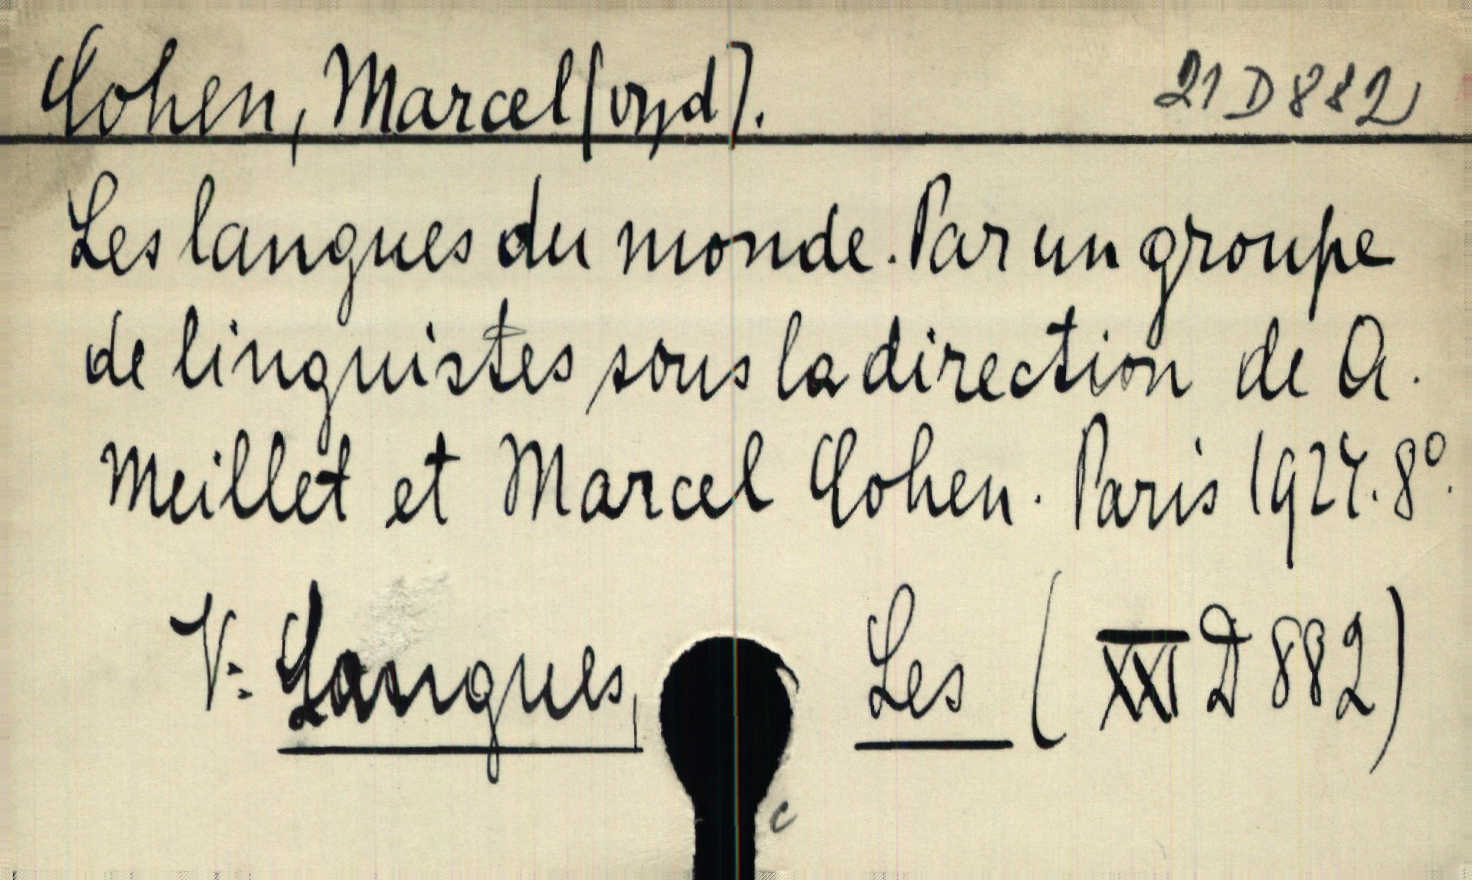 Cohen, Marcel (vyd). 21 D 882
Les langues du monde. Par un groupe
de linguistes sous la direction de A.
Meillet et Marcel Cohen. Paris 1924. 8°.
V: Langues, Les (XXI D 882)
c